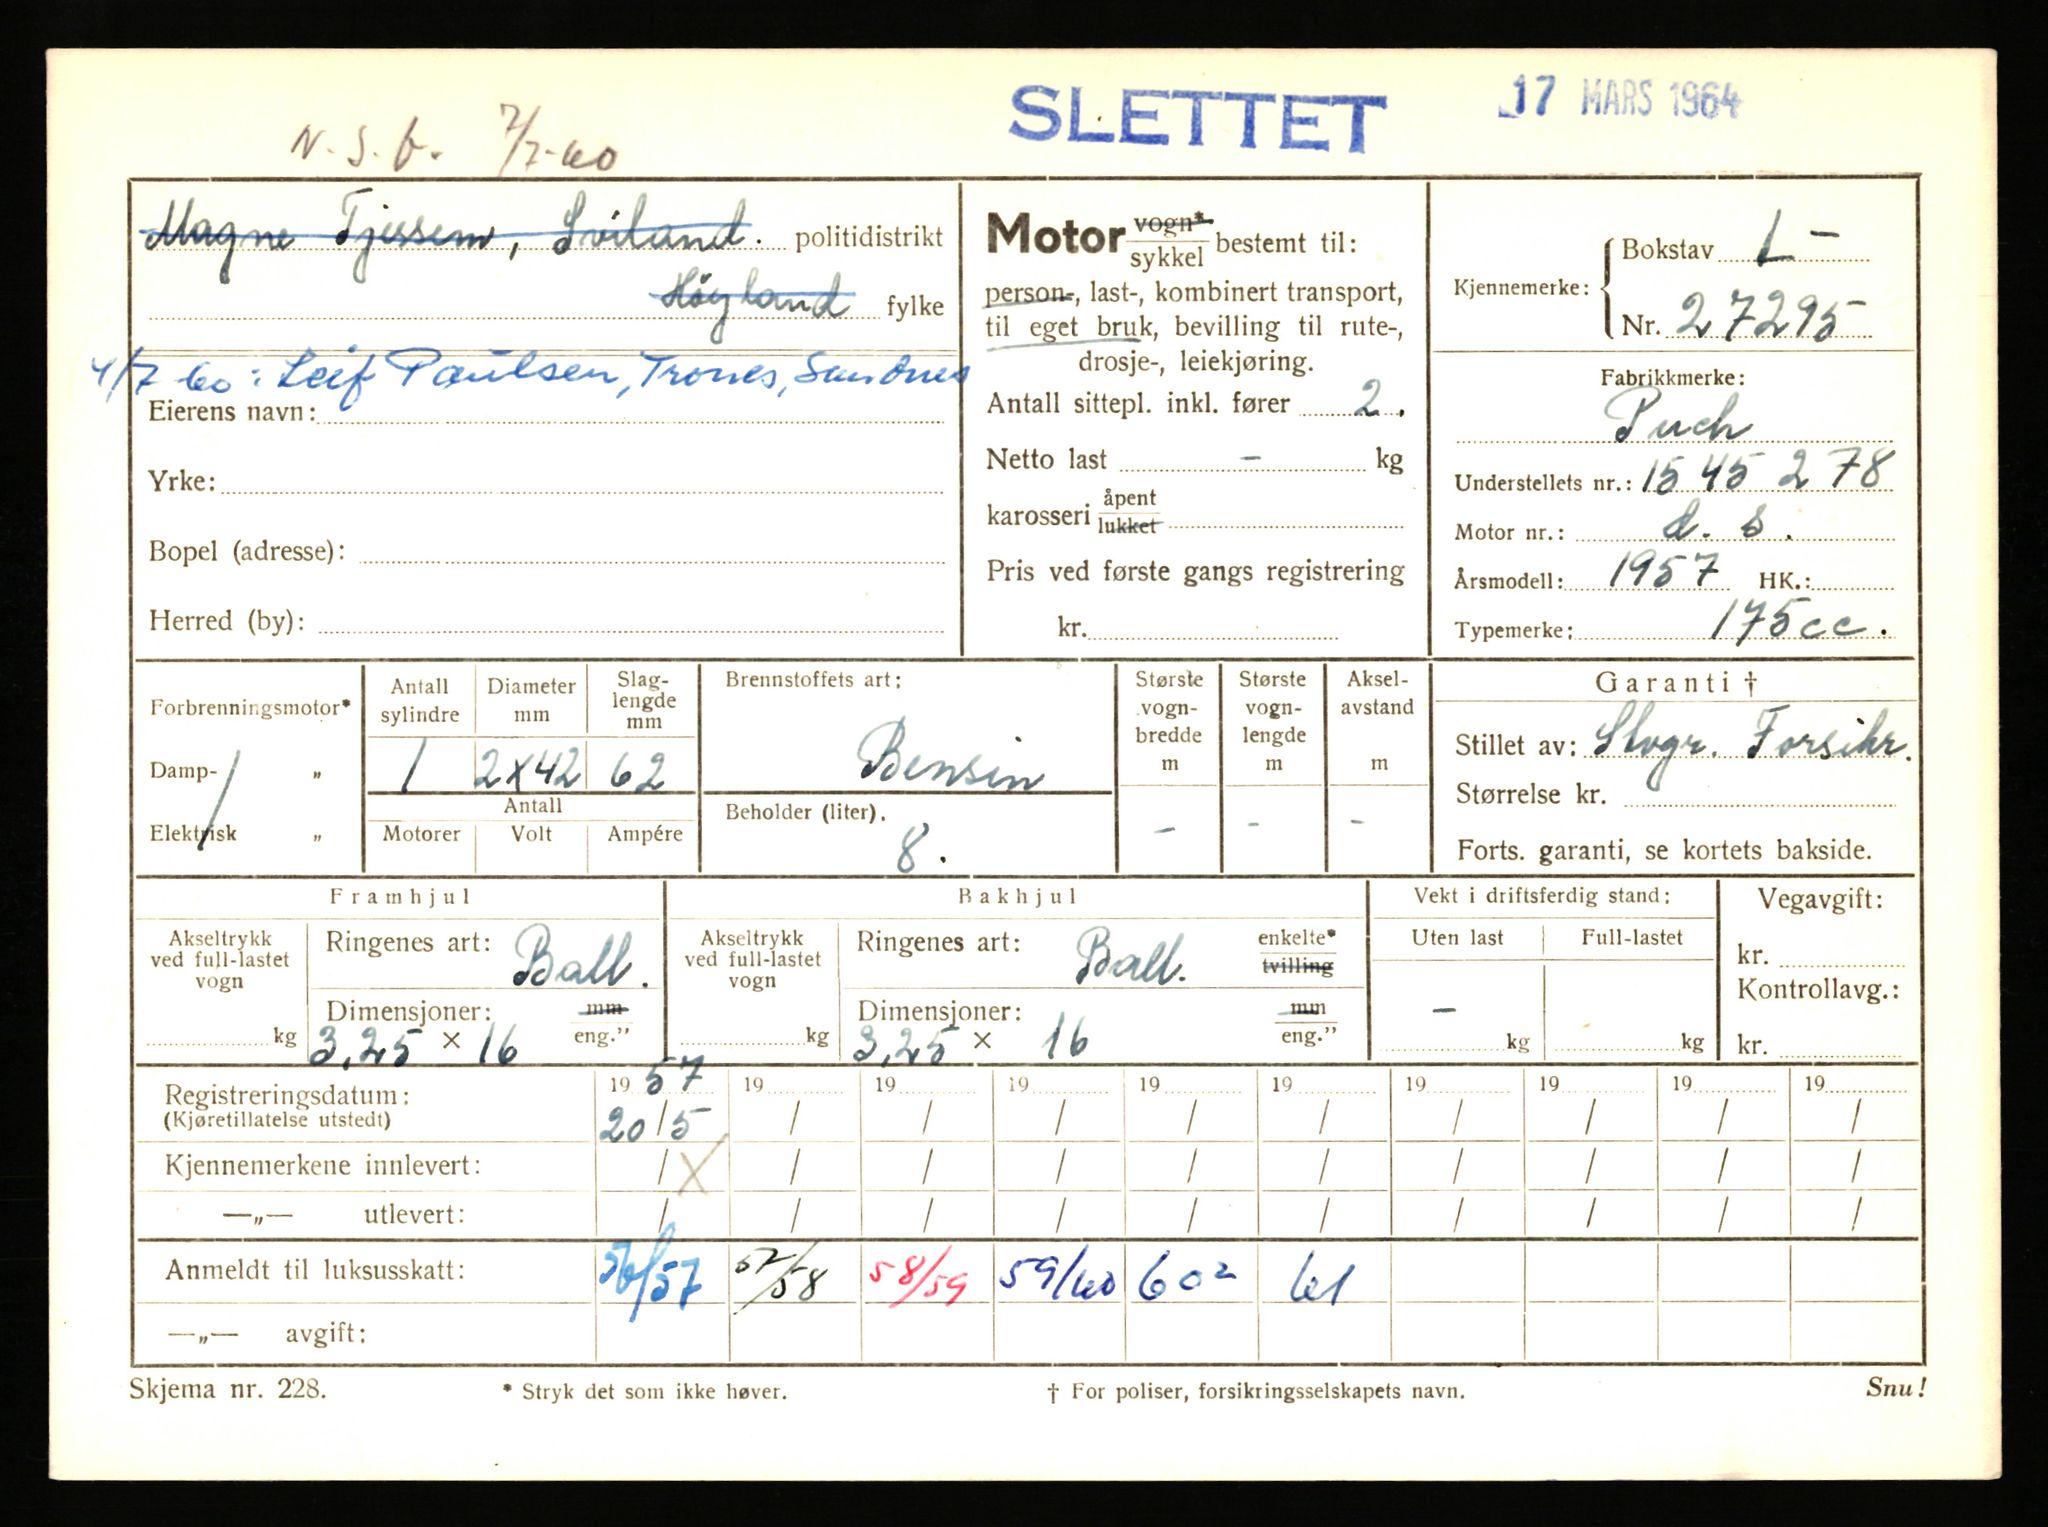 SLETTET 17 MARS 1964
N.S.b. 7/7-60
Magne Tjessem, Sviland. politidistrikt
Høyland fylke
4/7 60: Leif Paulsen, Trones, Sandnes
Eierens navn:
Yrke:
Bopel (adresse):
Herred (by):
Motor vogn*
sykkel bestemt til:
person-, last-, kombinert transport,
til eget bruk, bevilling til rute-,
drosje-, leiekjøring.
Antall sittepl. inkl. fører 2.
Netto last - kg
karosseri åpent
lukket
Pris ved første gangs registrering
kr.
Kjennemerke: Bokstav L-
Nr. 27295
Fabrikkmerke:
Puch
Understellets nr.: 1545278
Motor nr.: d. s.
Årsmodell: 1957 HK.:
Typemerke: 175cc.
Forbrenningsmotor*
Damp- „
Elektrisk „
Antall sylindre
1
Diameter mm
2x42
Slag-
lengde
mm
62
Antall
Motorer Volt Ampére
Brennstoffets art:
Bensin
Beholder (liter).
8.
Største
vogn-
bredde
m
-
Største
vogn-
lengde
m
-
Aksel-
avstand
m
-
Garanti †
Stillet av: Stvgr. Forsikr.
Størrelse kr.
Forts. garanti, se kortets bakside.
Framhjul
Akseltrykk
ved full-lastet
vogn
kg
Ringenes art: Ball.
Dimensjoner: mm
3,25 × 16 eng.”
Bakhjul
Akseltrykk
ved full-lastet
vogn
kg
Ringenes art: Ball. enkelte*
tvilling
Dimensjoner: mm
3,25 × 16 eng.”
Vekt i driftsferdig stand:
Uten last Full-lastet
-
kg kg
Vegavgift:
kr.
Kontrollavg.:
kr.
Registreringsdatum: 19 57 19 19 19 19 19 19 19 19 19
(Kjøretillatelse utstedt) 20/5 / / / / / / / / /
Kjennemerkene innlevert: / X / / / / / / / / /
—„— utlevert: / / / / / / / / / /
Anmeldt til luksusskatt: 56/57 57/58 58/59 59/60 60² 61
—„— avgift:
Skjema nr. 228. * Stryk det som ikke høver. † For poliser, forsikringsselskapets navn. Snu!